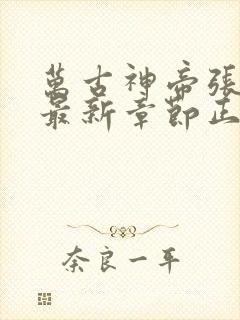 萬古神帝張
最新章節正
奈良一平